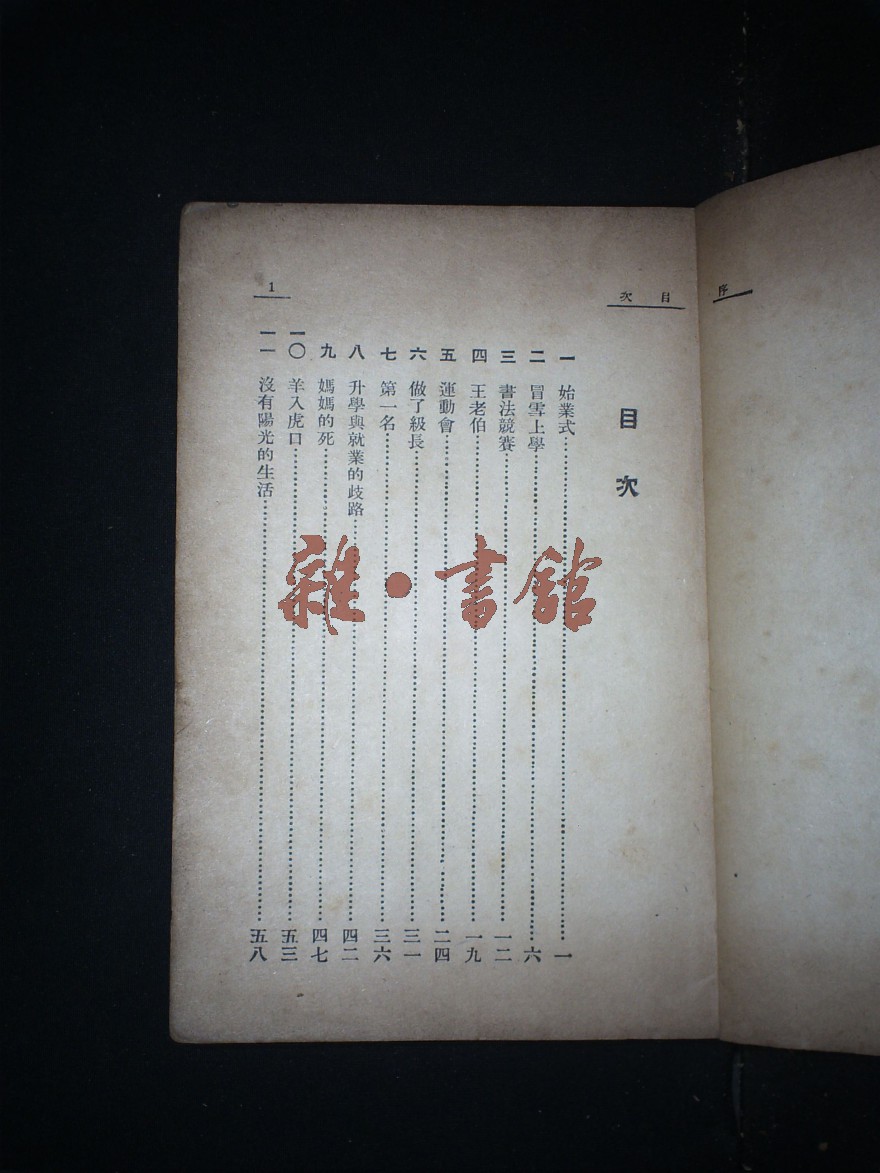 序
目次
1
目次
一 始業式……一
二 冒雪上學……六
三 書法競賽……一二
四 王老伯……一九
五 運動會……二四
六 做了級長……三一
七 第一名……三六
八 升學與就業的歧路……四二
九 媽媽的死……四七
一〇 羊入虎口……五三
一一 沒有陽光的生活……五八
雜·書館